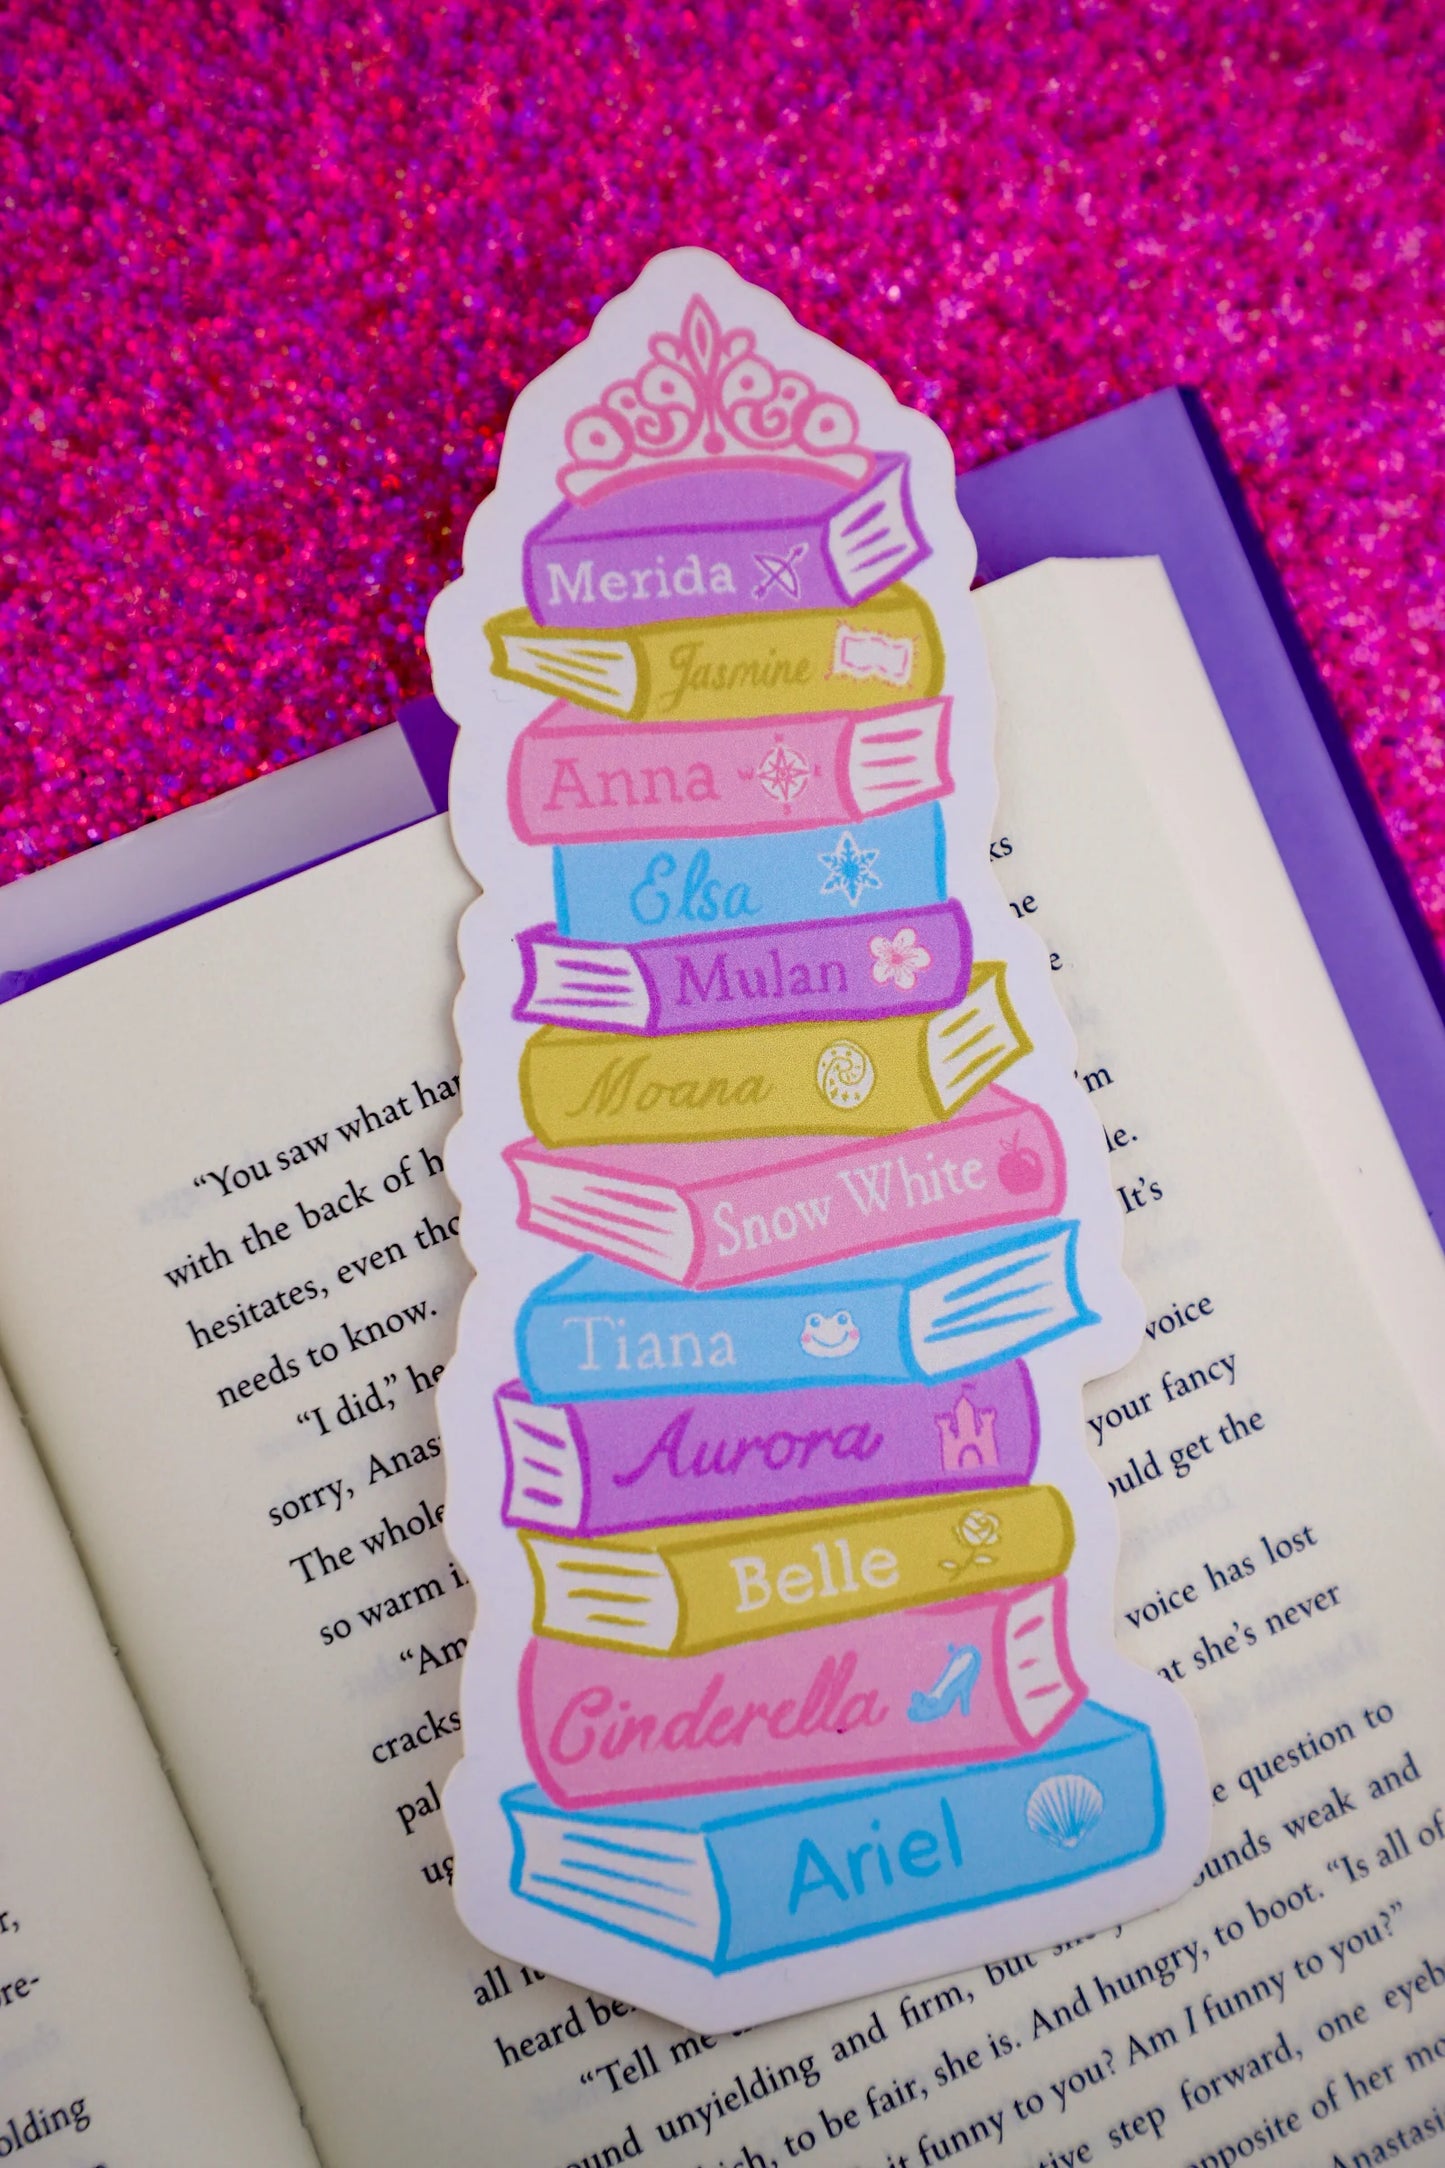 Merida
Jasmine
Anna
W E
Elsa
Mulan
Moana
Snow White
Tiana
Aurora
Belle
Cinderella
Ariel
“You saw what
with the back of
hesitates, even
needs to know.
“I did,” he
sorry,
The whole
so warm
cracks
pal
all
heard
“Tell me
unyielding and firm, but
to be fair, she is. And hungry, to boot. “Is all of
funny to you? Am I funny to you?”
step forward, one
opposite of her
It’s
voice
your fancy
get the
voice has lost
she’s never
question to
weak and